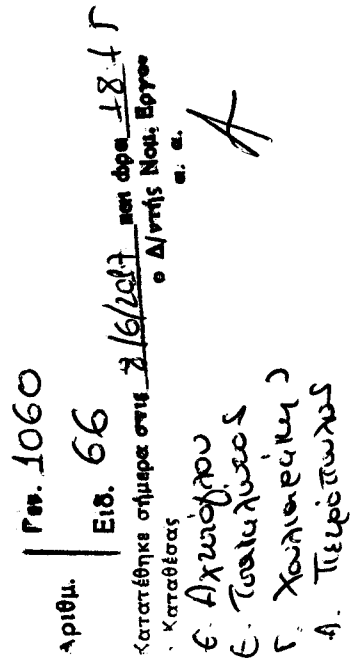 Αριθμ.
Γεν. 1060
Ειδ. 66
Κατατέθηκε σήμερα στις 7/6/2017 και ώρα 18:15
ο Δ/ντής Νομ. Εργου
α. α.
Καταθέσας
Ε. Αχτσιόγλου
Ε. Τσακαλώτος
Γ. Χουλιαράκης
Δ. Πετρόπουλος